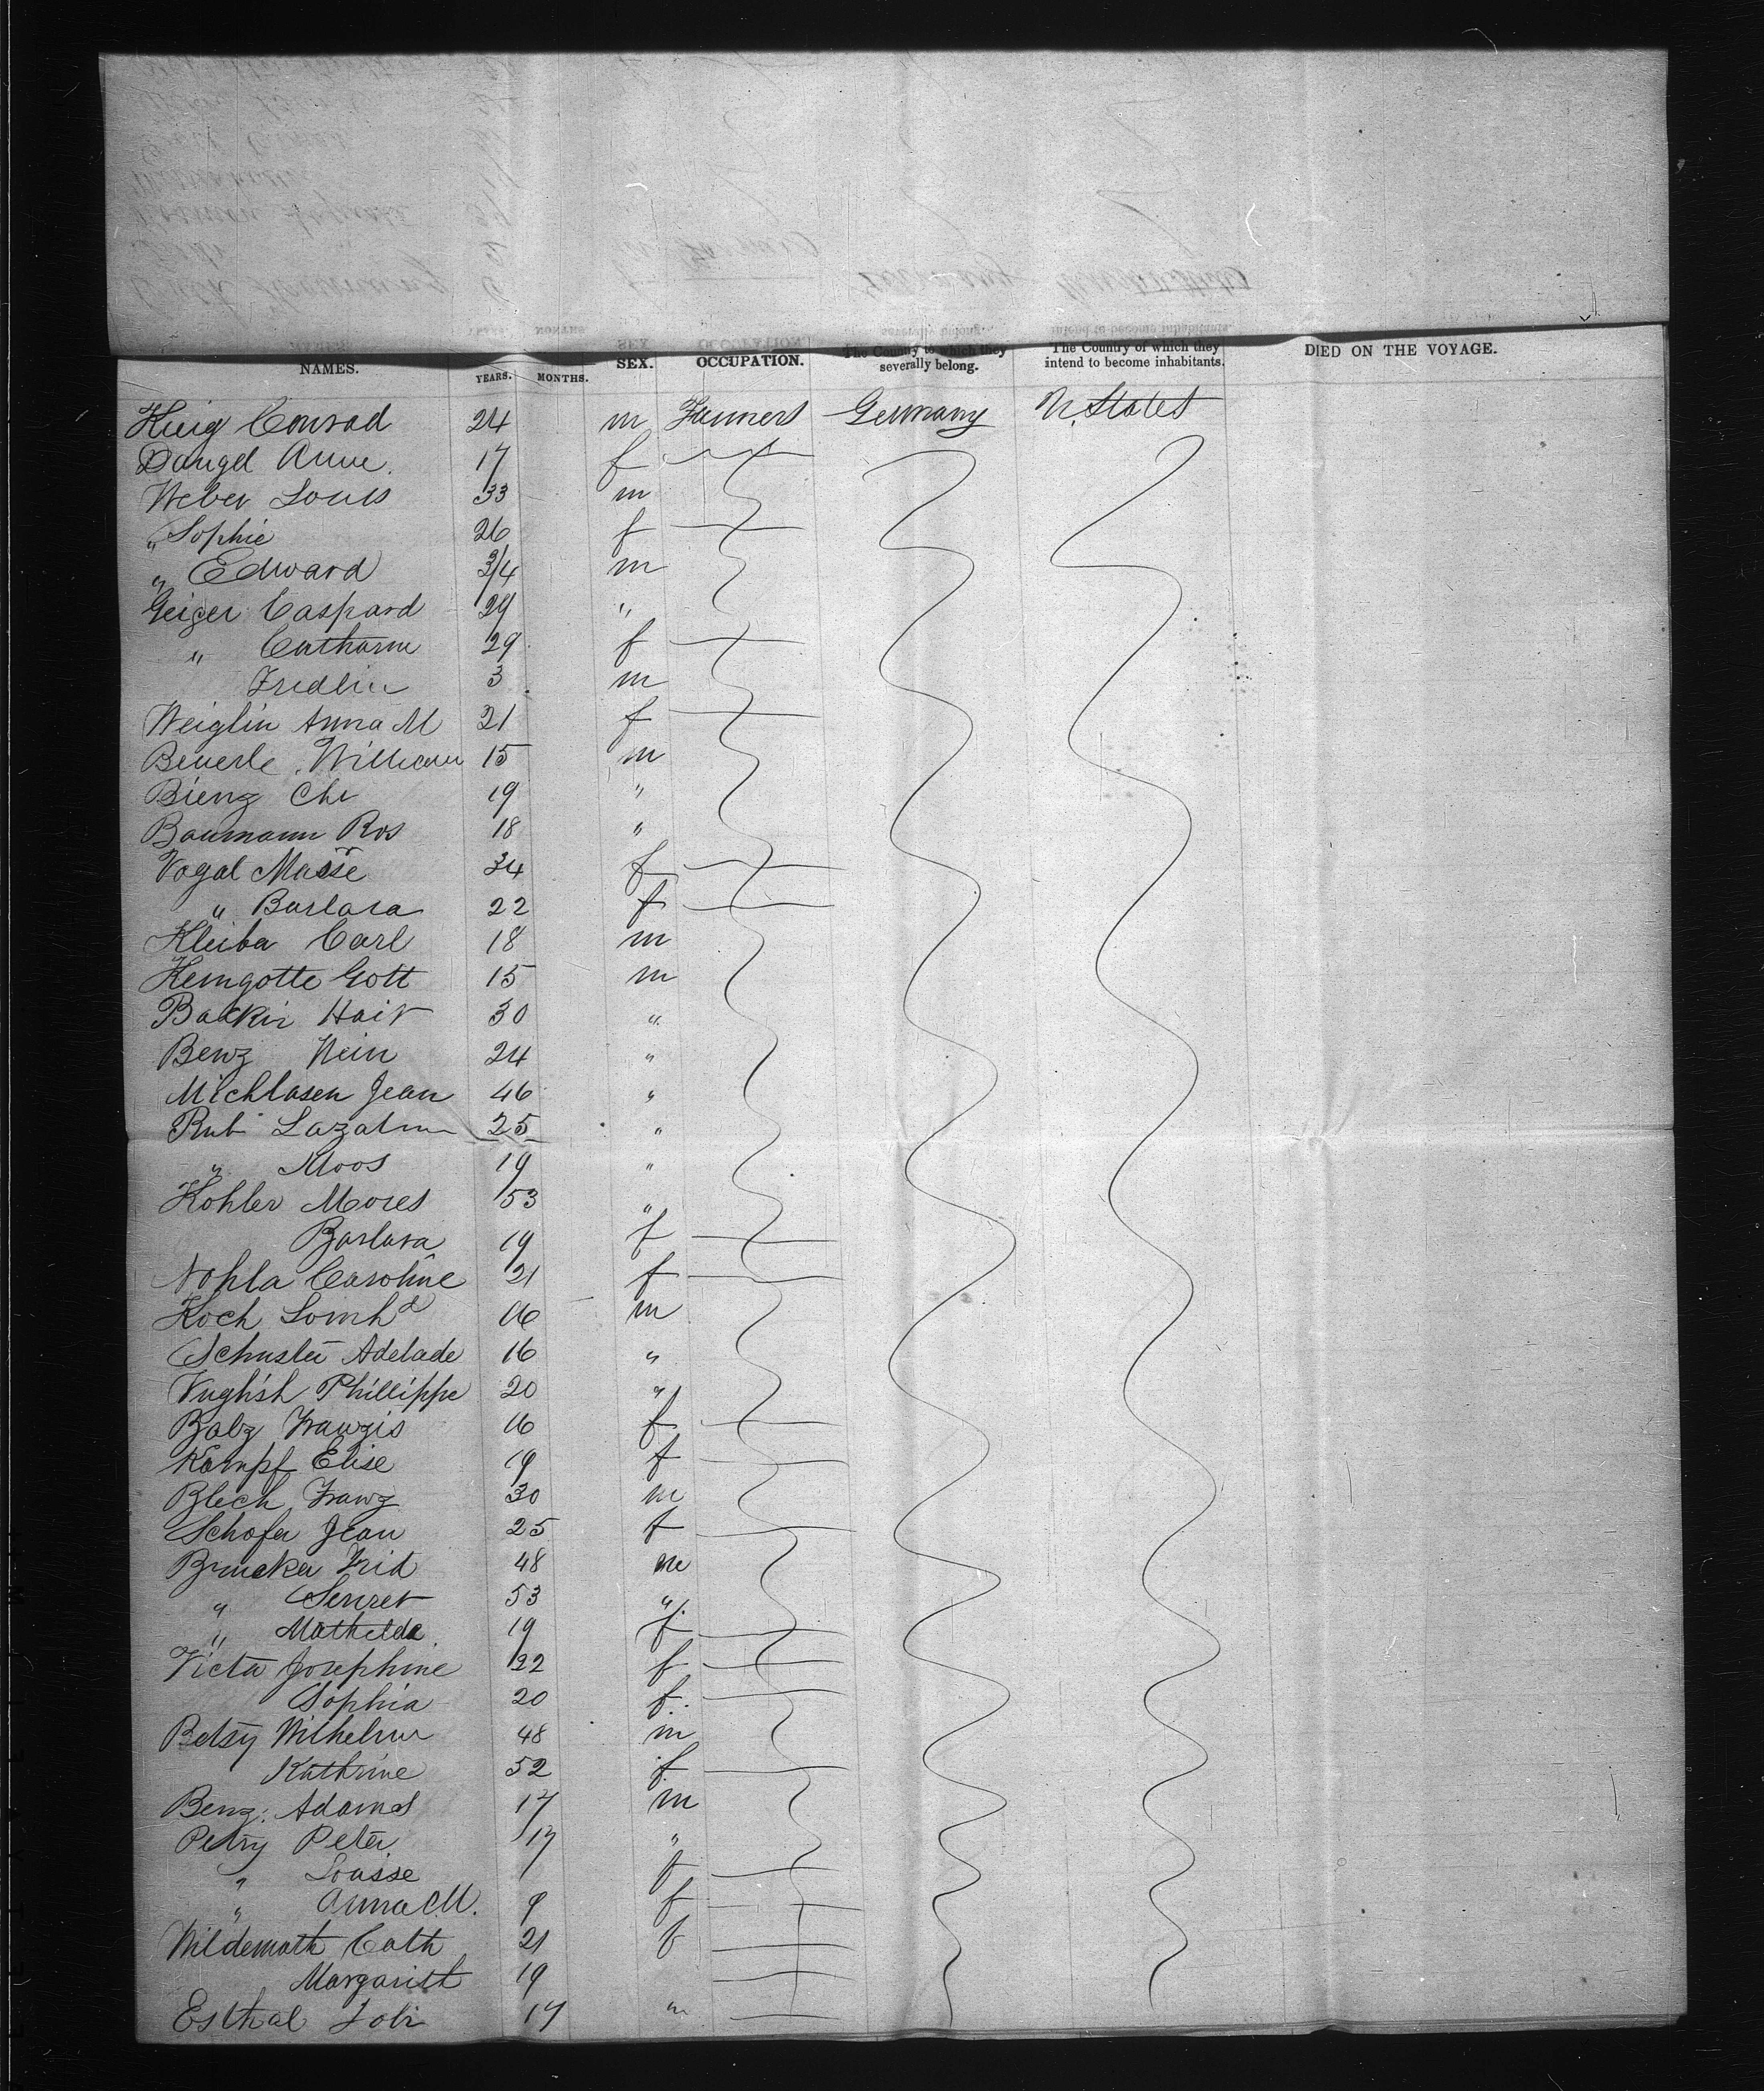 NAMES. YEARS. MONTHS. SEX. OCCUPATION. The Country to which they severally belong. The Country of which they intend to become inhabitants. DIED ON THE VOYAGE.
Conrad 24 m Farmers Germany U. States
Dangel Anne 17 f
Weber Louis 33 m
" Sophie 26 f
" Edward 3/4 m
Geiger Caspard 29 "
" Catharin 29 f
Fridlin 3 m
Weiglin Anna M 21 f
Beuerle William 15 m
Bieng Chr 19 "
Baumann Ros 18 "
Vogal 34 f
" Barbara 22 f
Kleiba Carl 18 m
Kemgotte Gott 15 m
30 "
Benz 24 "
Michlasen Jean 46 "
Rub 25 "
" Moos 19 "
Kohler Mores 53 "
Barbara 19 f
Nohla Caroline 21 f
Koch 16 m
Schuster Adelade 16 "
Phillippe 20 "
Balz Franzis 16 f
Kampf Elise 19 f
Blech Franz 30 m
Schofer Jean 25 f
Brucker Frid 48 m
" 53 "
" Mathelda 19 f
Victa Josephine 22 f
Sophia 20 f
Betsy Wilhelm 48 m
Kathrine 52 f
Benz Adames 17 m
Petry Peter 17 "
" Louisse 1 f
" Anna M. 9 f
Wildemath Cath 21 f
Margarith 19
Esthal 17 "